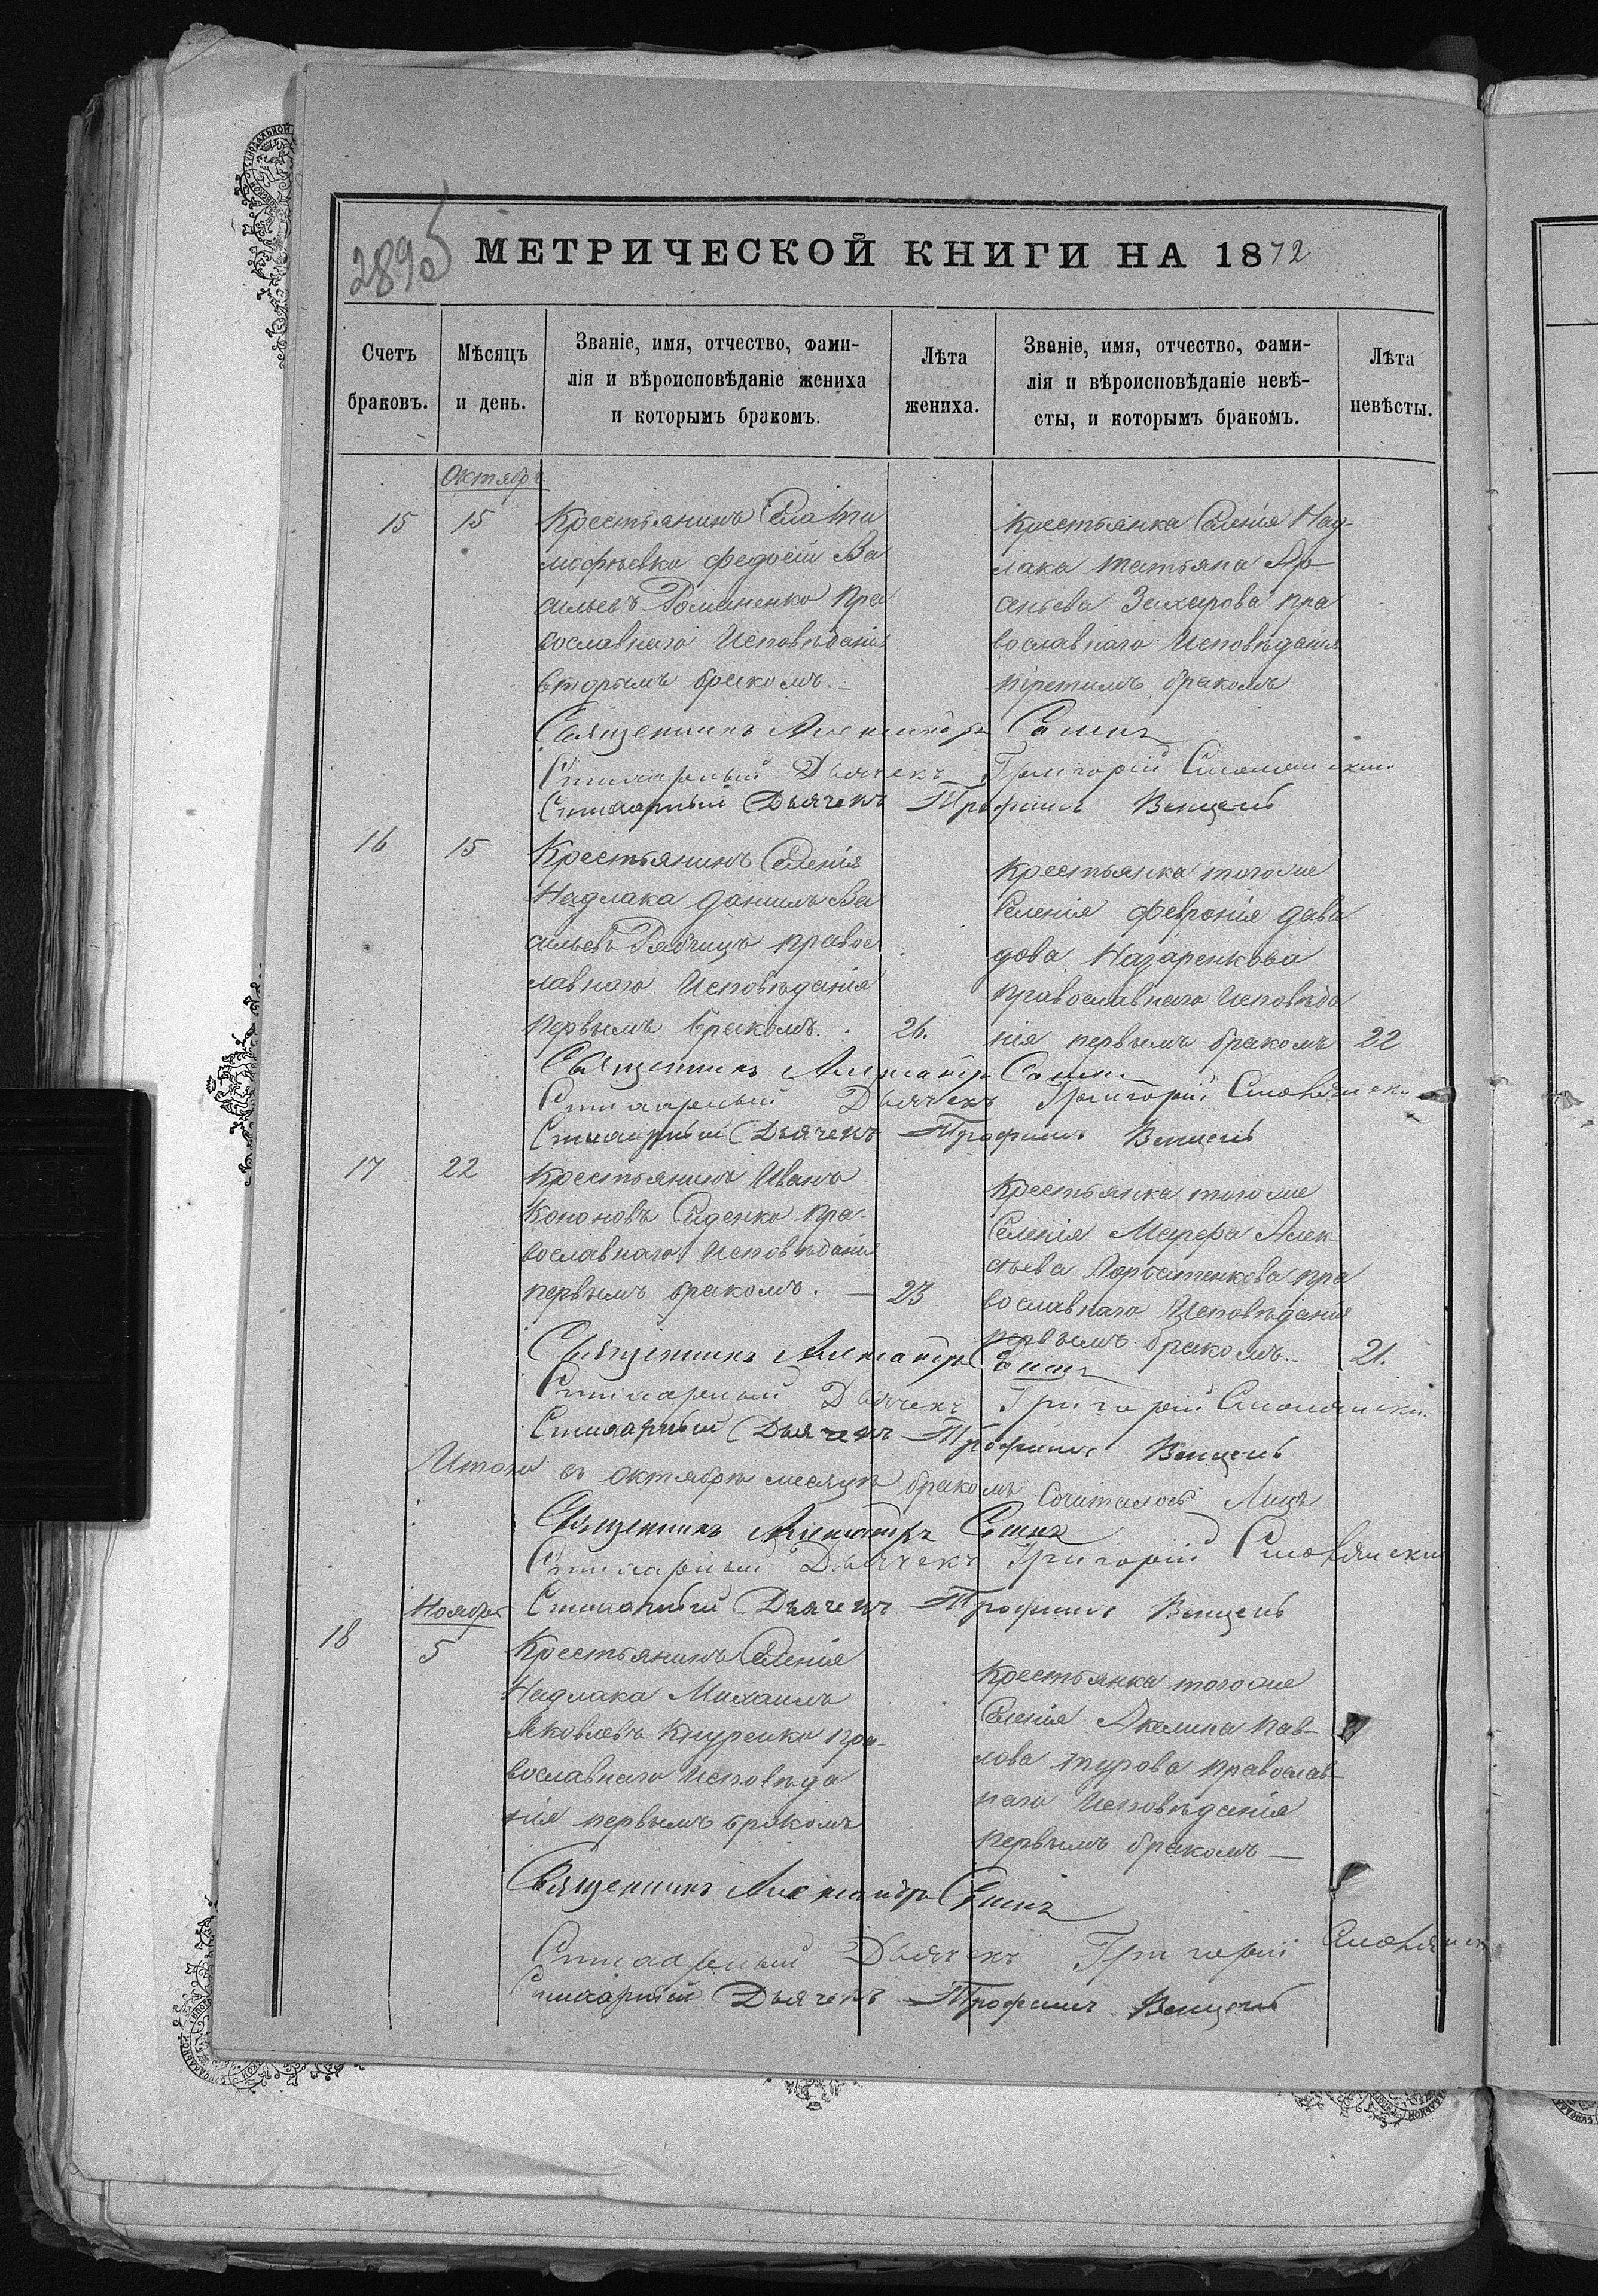 МЕТРИЧЕСКОЙ КНИГИ НА 1872
Счетъ браковъ.
Мѣсяцъ и день.
Званіе, имя, отчество, фами-
лія и вѣроисповѣданіе жениха
и которымъ бракомъ.
Лѣта жениха.
Званіе, имя, отчество, фами-
лія и вѣроисповѣданіе невѣ-
сты, и которымъ бракомъ.
Лѣта невѣсты.
Октябрь
15
15
Крестьянинъ Села Ти
мофѣевки Федосій Ва
сильевъ Романенко Пра
вославнаго Исповѣданія
вторымъ бракомъ.
Крестьянка Селенія Над-
лака Татьяна
Захарова пра
вославнаго Исповѣданія
третимъ бракомъ
Священникъ Александръ
Стихарный Дьячекъ Григорій
Стихарный Дьячекъ Трофимъ
16
15
Крестьянинъ Селенія
Надлака Данилъ Ва
сильевъ правос
лавнаго Исповѣданія
первымъ бракомъ. 26.
Крестьянка того же
Селенія Февронія Дави
дова Назаренкова
православнаго Исповѣда
нія первымъ бракомъ 22
Священникъ Александръ
Стихарный Дьячекъ Григорій
Стихарный Дьячекъ Трофимъ
17
22
Крестьянинъ Иванъ
Кононовъ Сиденко пра-
вославнаго Исповѣданія
первымъ бракомъ. — 23
Крестьянка того же
Селенія Марфа Алек
сѣева пра
вославнаго Исповѣданія
первымъ бракомъ. 21.
Священникъ Александръ
Стихарный Дьячекъ Григорій
Стихарный Дьячекъ Трофимъ
Итого въ Октябрѣ месяцѣ бракомъ сочиталось Лицъ
Священникъ Александръ
Стихарный Дьячекъ Григорій
Стихарный Дьячекъ Трофимъ
Ноябрь
18
5
Крестьянинъ Селенія
Надлака Михаилъ
Яковлевъ Кнуренко пра-
вославнаго Исповѣда
нія первымъ бракомъ
Крестьянка того же
Селенія Акелина Пав-
лова Турова православ-
наго Исповѣданія
первымъ бракомъ —
Священникъ Александръ
Стихарный Дьячекъ Григорій
Стихарный Дьячекъ Трофимъ